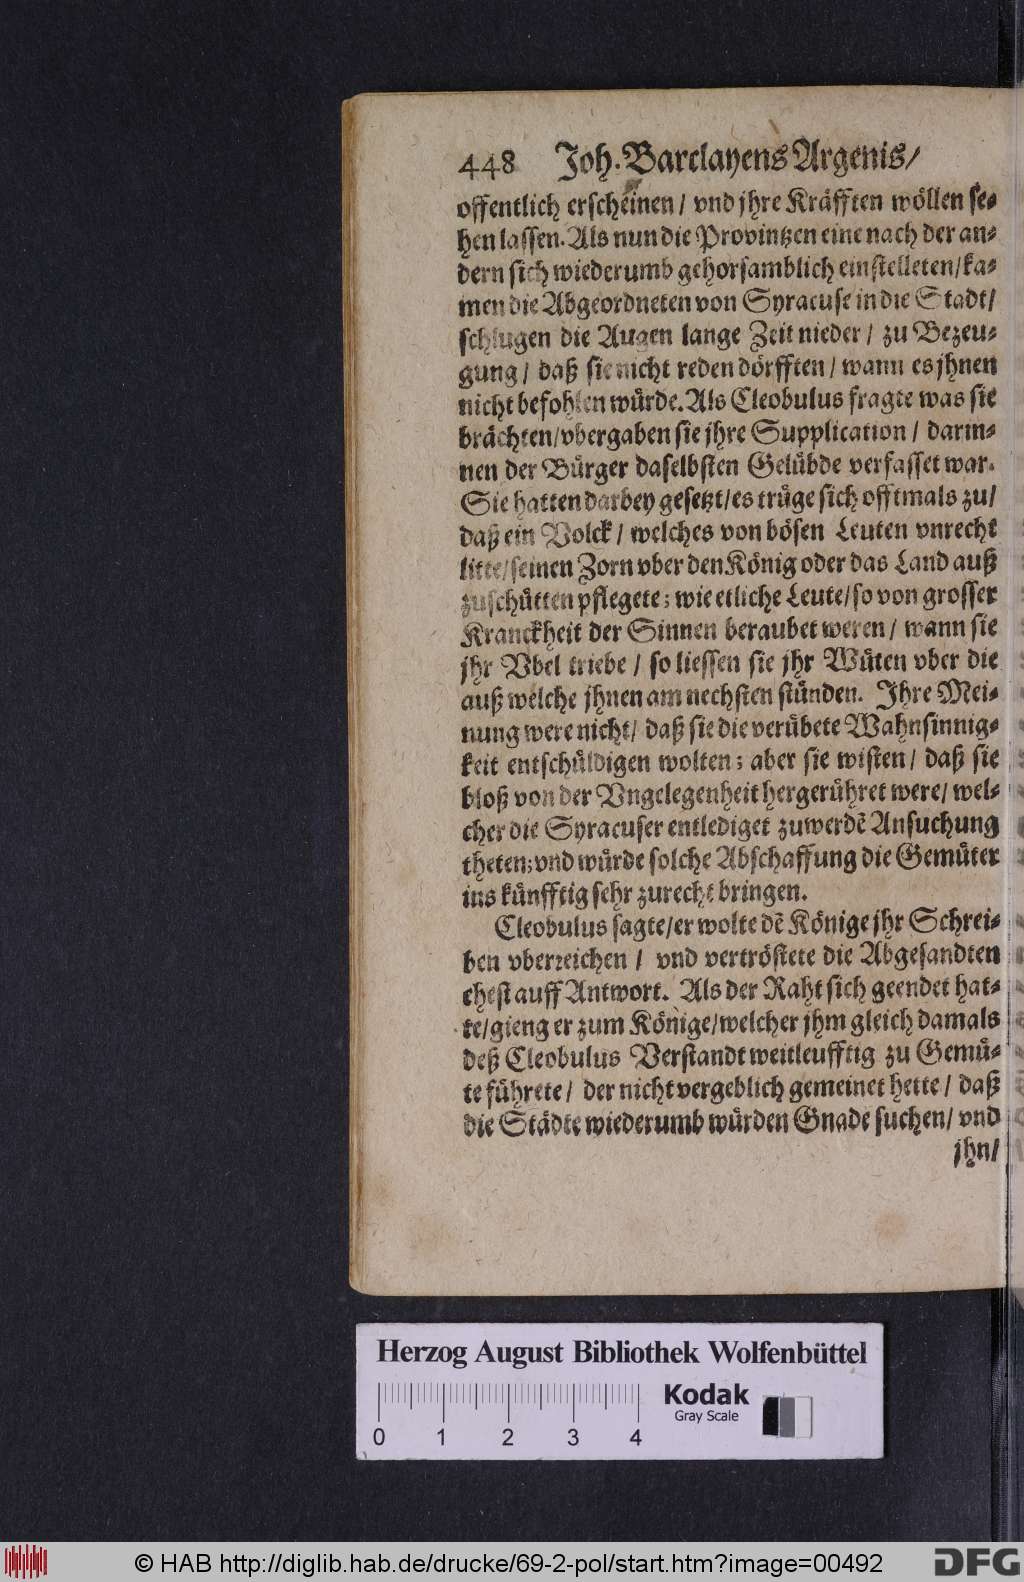 448 Joh. Barclayens Argenis/
offentlich erscheinen / vnd jhre Kräfften wöllen se-
hen lassen. Als nun die Provintzen eine nach der an-
dern sich wiederumb gehorsamblich einstelleten/ka-
men die Abgeordneten von Syracuse in die Stadt/
schlugen die Augen lange Zeit nieder / zu Bezeu-
gung / daß sie nicht reden dörfften / wann es jhnen
nicht befohlen würde. Als Cleobulus fragte was sie
brächten/vbergaben sie jhre Supplication / darin-
nen der Bürger daselbsten Gelübde verfasset war.
Sie hatten darbey gesetzt/es trüge sich offtmals zu/
daß ein Volck / welches von bösen Leuten vnrecht
litte/seinen Zorn vber den König oder das Land auß
zuschütten pflegete; wie etliche Leute/so von grosser
Kranckheit der Sinnen beraubet weren / wann sie
jhr Vbel triebe / so liessen sie jhr Wüten vber die
auß welche jhnen am nechsten stünden. Ihre Mei-
nung were nicht/ daß sie die verübete Wahnsinnig-
keit entschüldigen wolten; aber sie wisten / daß sie
bloß von der Vngelegenheit hergerühret were/ wel-
cher die Syracuser entlediget zuwerdē Ansuchung
theten; vnd würde solche Abschaffung die Gemüter
ins künfftig sehr zurecht bringen.
Cleobulus sagte/er wolte dē Könige jhr Schrei-
ben vberreichen / vnd vertröstete die Abgesandten
ehest auff Antwort. Als der Raht sich geendet hat-
te/gieng er zum Könige/welcher jhm gleich damals
deß Cleobulus Verstandt weitleufftig zu Gemü-
te führete / der nicht vergeblich gemeinet hette / daß
die Städte wiederumb würden Gnade suchen/ vnd
jhn/
Herzog August Bibliothek Wolfenbüttel
Kodak
Gray Scale
0 1 2 3 4
© HAB http://diglib.hab.de/drucke/69-2-pol/start.htm?image=00492
DFG